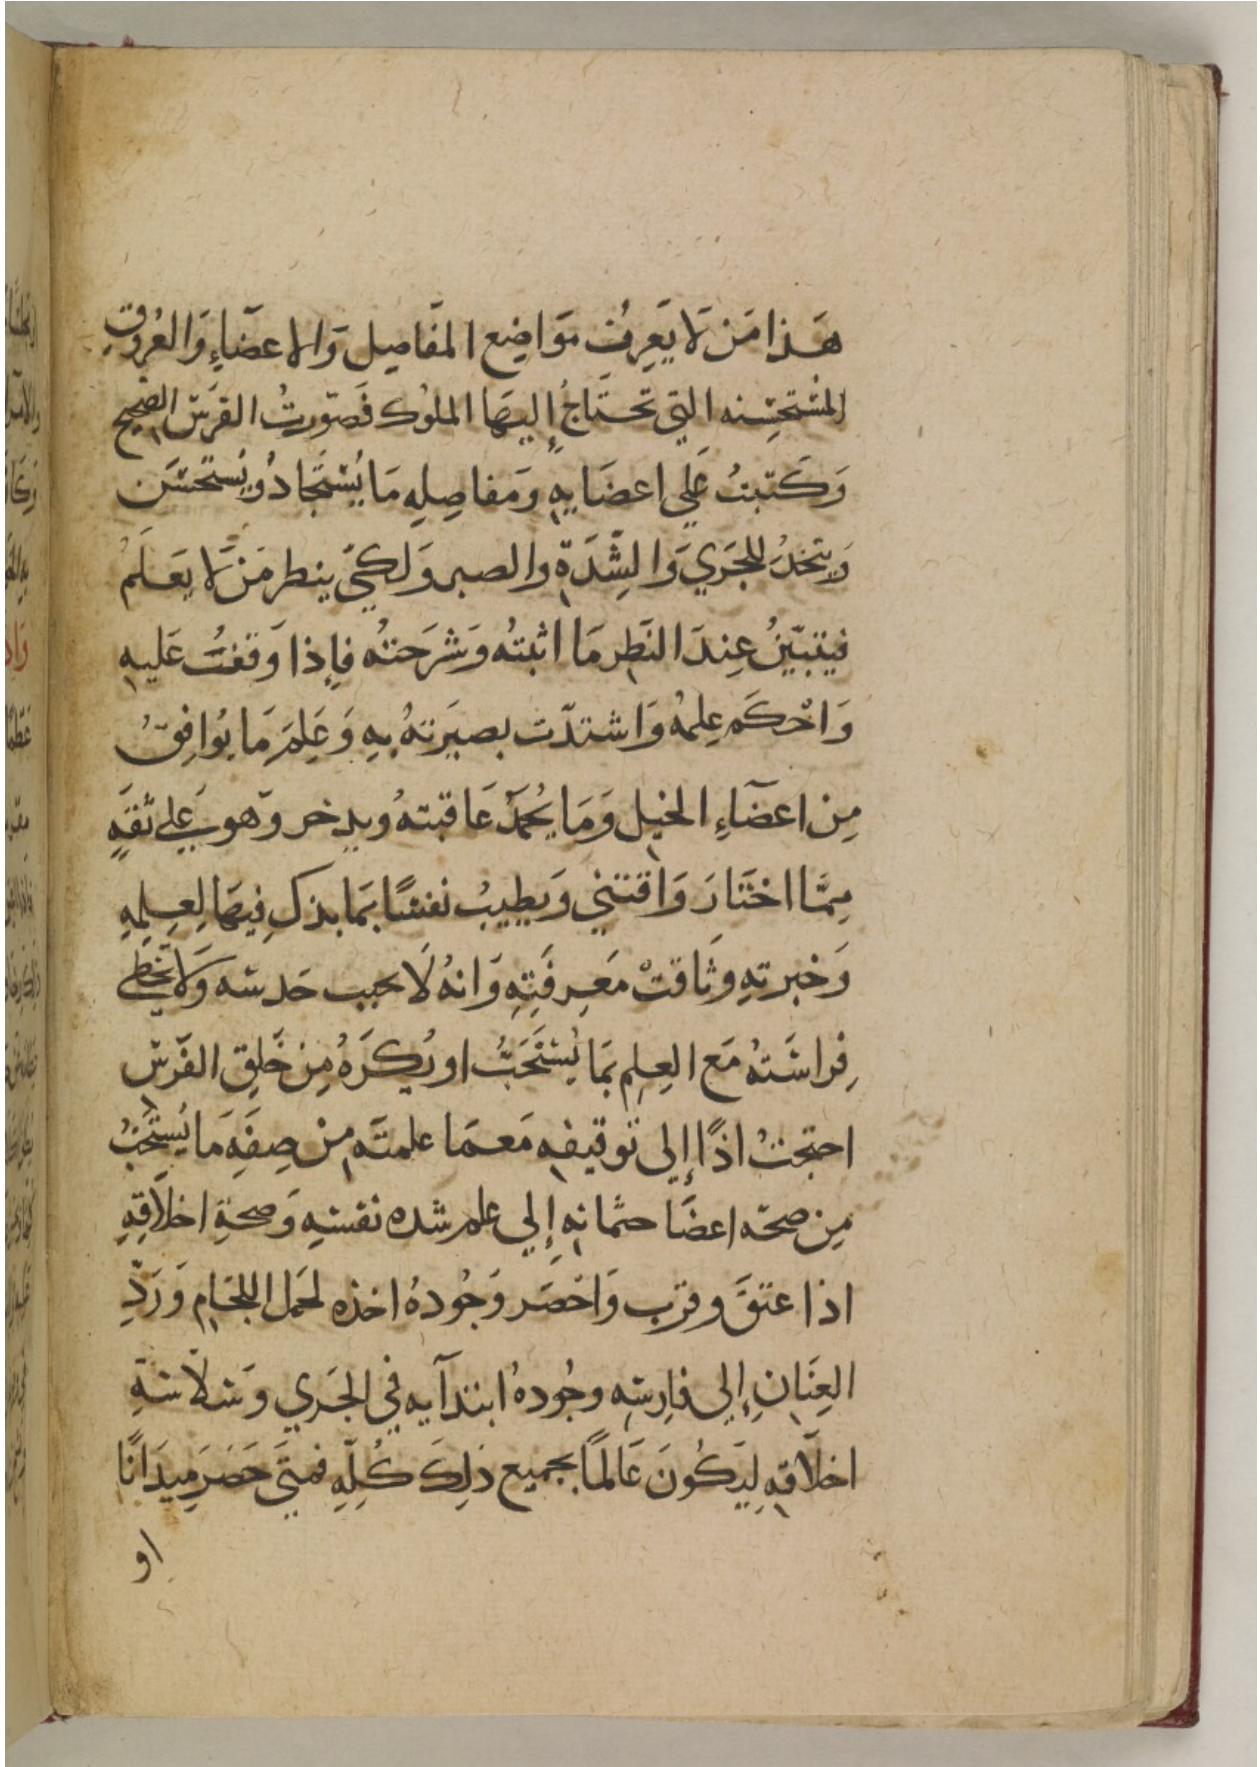 هَذا مَن لَا يَعرِفُ مَوَاضِع المَفاصِيل وَالاعضَاءِ وَالعُرُوقِ
المُستَحسِنه التِي تحتَاجُ إِليهَا الملوُك فَصَوّرتُ الفَرَسَ الصَّحِيح
وَكَتَبتُ عَلي اعضَايهِ وَمفاصِلِهِ مَا يُستَجَادُ وَيُستَحسَن
وَيتخذُ لِلجَرَيِ وَالشِّدَةِ وَالصبر وَلكَيّ ينظر مَن لَا يَعلَمُ
فيتبَيّنُ عِندَ النَظَرِ مَا اثبتهُ وَشَرَحَتهُ فإِذا وَقفتُ عَليهِ
وَاحْكَم عِلمهُ وَاشتدّت بصِيَرتهُ بِهِ وَعَلِمَ مَا يُوافِقُ
مِن اعضَآءِ الخيلِ وَمَا يُحمَدُ عَاقبتهُ ويدخر وَهو عَلي ثقَةٍ
مِمَّا اختَارَ وَاقتنني وَيطِيبُ نفسًا بمَا بذكِ فِيهَا لِعِلِمِهِ
وَخبرتهِ وثَاقتْ مَعِرفَتِهِ وَانهُ لَا يخيب حَدسه وَلَا يخطي
فِراسَتهُ مَع العِلِمِ بمَا يُستَحَبُّ او يُكرَهُ مِن خَلِقِ الفَرَسِ
احتجتُ اذًا إِلي توقيفهِ مَعمَا علمتَه مِن صِفَةِ مَا يُستَحَبُّ
مِن صحّه اعضَا حثمانهِ إِلي علم شده نفسهِ وَصحةِ اخلَاقِهِ
اذا عتقَ وقرب وَاحضَر وَجُودهُ اخذه لحَملِ اللجَامِ وَرَدِّ
العِنَانِ إِلي فارِسِهِ وجُودهُ ابتدآيهِ فِي الجَرَي وَسَلَاسَةِ
اخلَاقهِ لِيَكُونَ عَالمًا بجميع ذَلِكَ كُلِّهِ فمتَي حَضَرَ مِيدَانًا
او